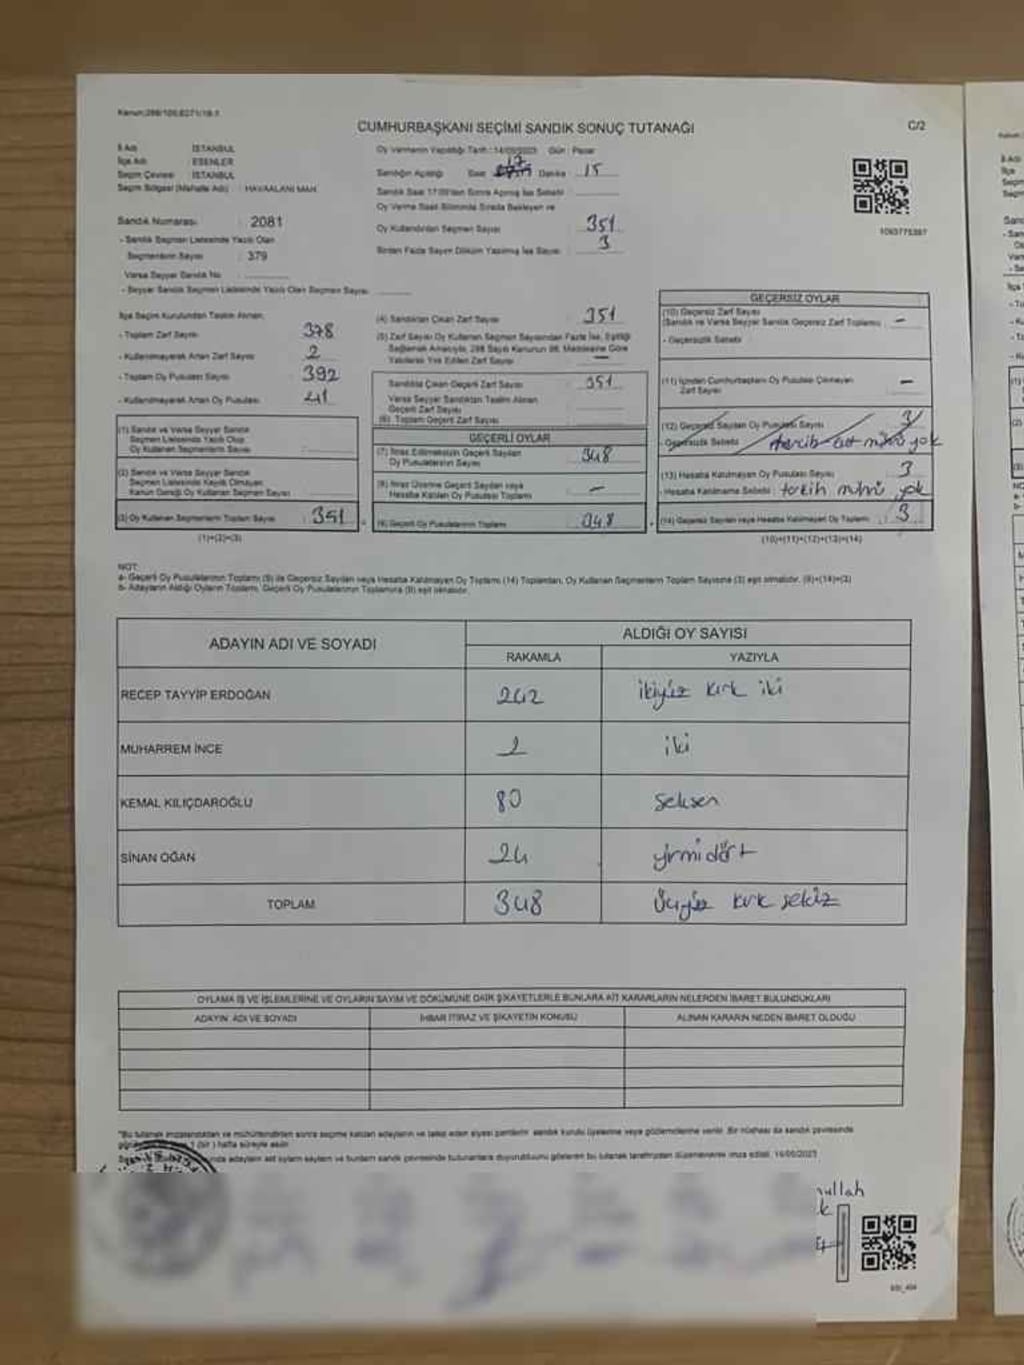 CUMHURBAŞKANI SEÇİMİ SANDIK SONUÇ TUTANAĞI
C/2
İl Adı : İSTANBUL
İlçe Adı : ESENLER
Seçim Çevresi : İSTANBUL
Seçim Bölgesi (Mahalle Adı) : HAVAALANI MAH.
Oy Vermenin Yapıldığı Tarih : 14/05/2023 Gün : Pazar
Sandığın Açıldığı Saat 17 Dakika : 15
Sandık Saat 17:00'den Sonra Açılmış İse Sebebi :
Oy Verme Saati Bitiminde Sırada Bekleyen ve
Oy Kullandırılan Seçmen Sayısı 351
Birden Fazla Sayım Döküm Yapılmış İse Sayısı : 3
Sandık Numarası : 2081
- Sandık Seçmen Listesinde Yazılı Olan
Seçmenlerin Sayısı : 379
Varsa Seyyar Sandık No :
- Seyyar Sandık Seçmen Listesinde Yazılı Olan Seçmen Sayısı :
İlçe Seçim Kurulundan Teslim Alınan
- Toplam Zarf Sayısı : 378
- Kullanılmayarak Artan Zarf Sayısı : 2
- Toplam Oy Pusulası Sayısı : 392
- Kullanılmayarak Artan Oy Pusulası : 41
(1) Sandık ve Varsa Seyyar Sandık
Seçmen Listesinde Yazılı Olup
Oy Kullanan Seçmenlerin Sayısı :
(2) Sandık ve Varsa Seyyar Sandık
Seçmen Listesinde Kayıtlı Olmayan
Kanun Gereği Oy Kullanan Seçmen Sayısı :
(3) Oy Kullanan Seçmenlerin Toplam Sayısı : 351
(1)+(2)=(3)
(4) Sandıktan Çıkan Zarf Sayısı : 351
(5) Zarf Sayısı Oy Kullanan Seçmen Sayısından Fazla İse, Eşitliği
Sağlamak Amacıyla, 298 Sayılı Kanunun 98. Maddesine Göre
Yakılarak Yok Edilen Zarf Sayısı : —
Sandıkta Çıkan Geçerli Zarf Sayısı : 351
Varsa Seyyar Sandıktan Teslim Alınan
Geçerli Zarf Sayısı
(6) Toplam Geçerli Zarf Sayısı :
GEÇERLİ OYLAR
(7) İtiraz Edilmeksizin Geçerli Sayılan
Oy Pusulalarının Sayısı : 348
(8) İtiraz Üzerine Geçerli Sayılan veya
Hesaba Katılan Oy Pusulası Toplamı : —
(9) Geçerli Oy Pusulalarının Toplamı : 348
GEÇERSİZ OYLAR
(10) Geçersiz Zarf Sayısı
(Sandık ve Varsa Seyyar Sandık Geçersiz Zarf Toplamı) : —
- Geçersizlik Sebebi :
(11) İçinden Cumhurbaşkanı Oy Pusulası Çıkmayan
Zarf Sayısı : —
(12) Geçersiz Sayılan Oy Pusulası Sayısı : 3
- Geçersizlik Sebebi : mührü yok
(13) Hesaba Katılmayan Oy Pusulası Sayısı : 3
- Hesaba Katılmama Sebebi : tercih mührü yok
(14) Geçersiz Sayılan veya Hesaba Katılmayan Oy Toplamı : 3
NOT:
a- Geçerli Oy Pusulalarının Toplamı (9) ile Geçersiz Sayılan veya Hesaba Katılmayan Oy Toplamı (14) Toplamları, Oy Kullanan Seçmenlerin Toplam Sayısına (3) eşit olmalıdır. (9)+(14)=(3)
b- Adayların Aldığı Oyların Toplamı, Geçerli Oy Pusulalarının Toplamına (9) eşit olmalıdır.
ADAYIN ADI VE SOYADI
ALDIĞI OY SAYISI
RAKAMLA YAZIYLA
RECEP TAYYİP ERDOĞAN 242 ikiyüz kırk iki
MUHARREM İNCE 2 iki
KEMAL KILIÇDAROĞLU 80 Seksen
SİNAN OĞAN 24 yirmidört
TOPLAM 348 Üçyüz kırk sekiz
OYLAMA İŞ VE İŞLEMLERİNE VE OYLARIN SAYIM VE DÖKÜMÜNE DAİR ŞİKAYETLERLE BUNLARA AİT KARARLARIN NELERDEN İBARET BULUNDUKLARI
ADAYIN ADI VE SOYADI İHBAR İTİRAZ VE ŞİKAYETİN KONUSU ALINAN KARARIN NEDEN İBARET OLDUĞU